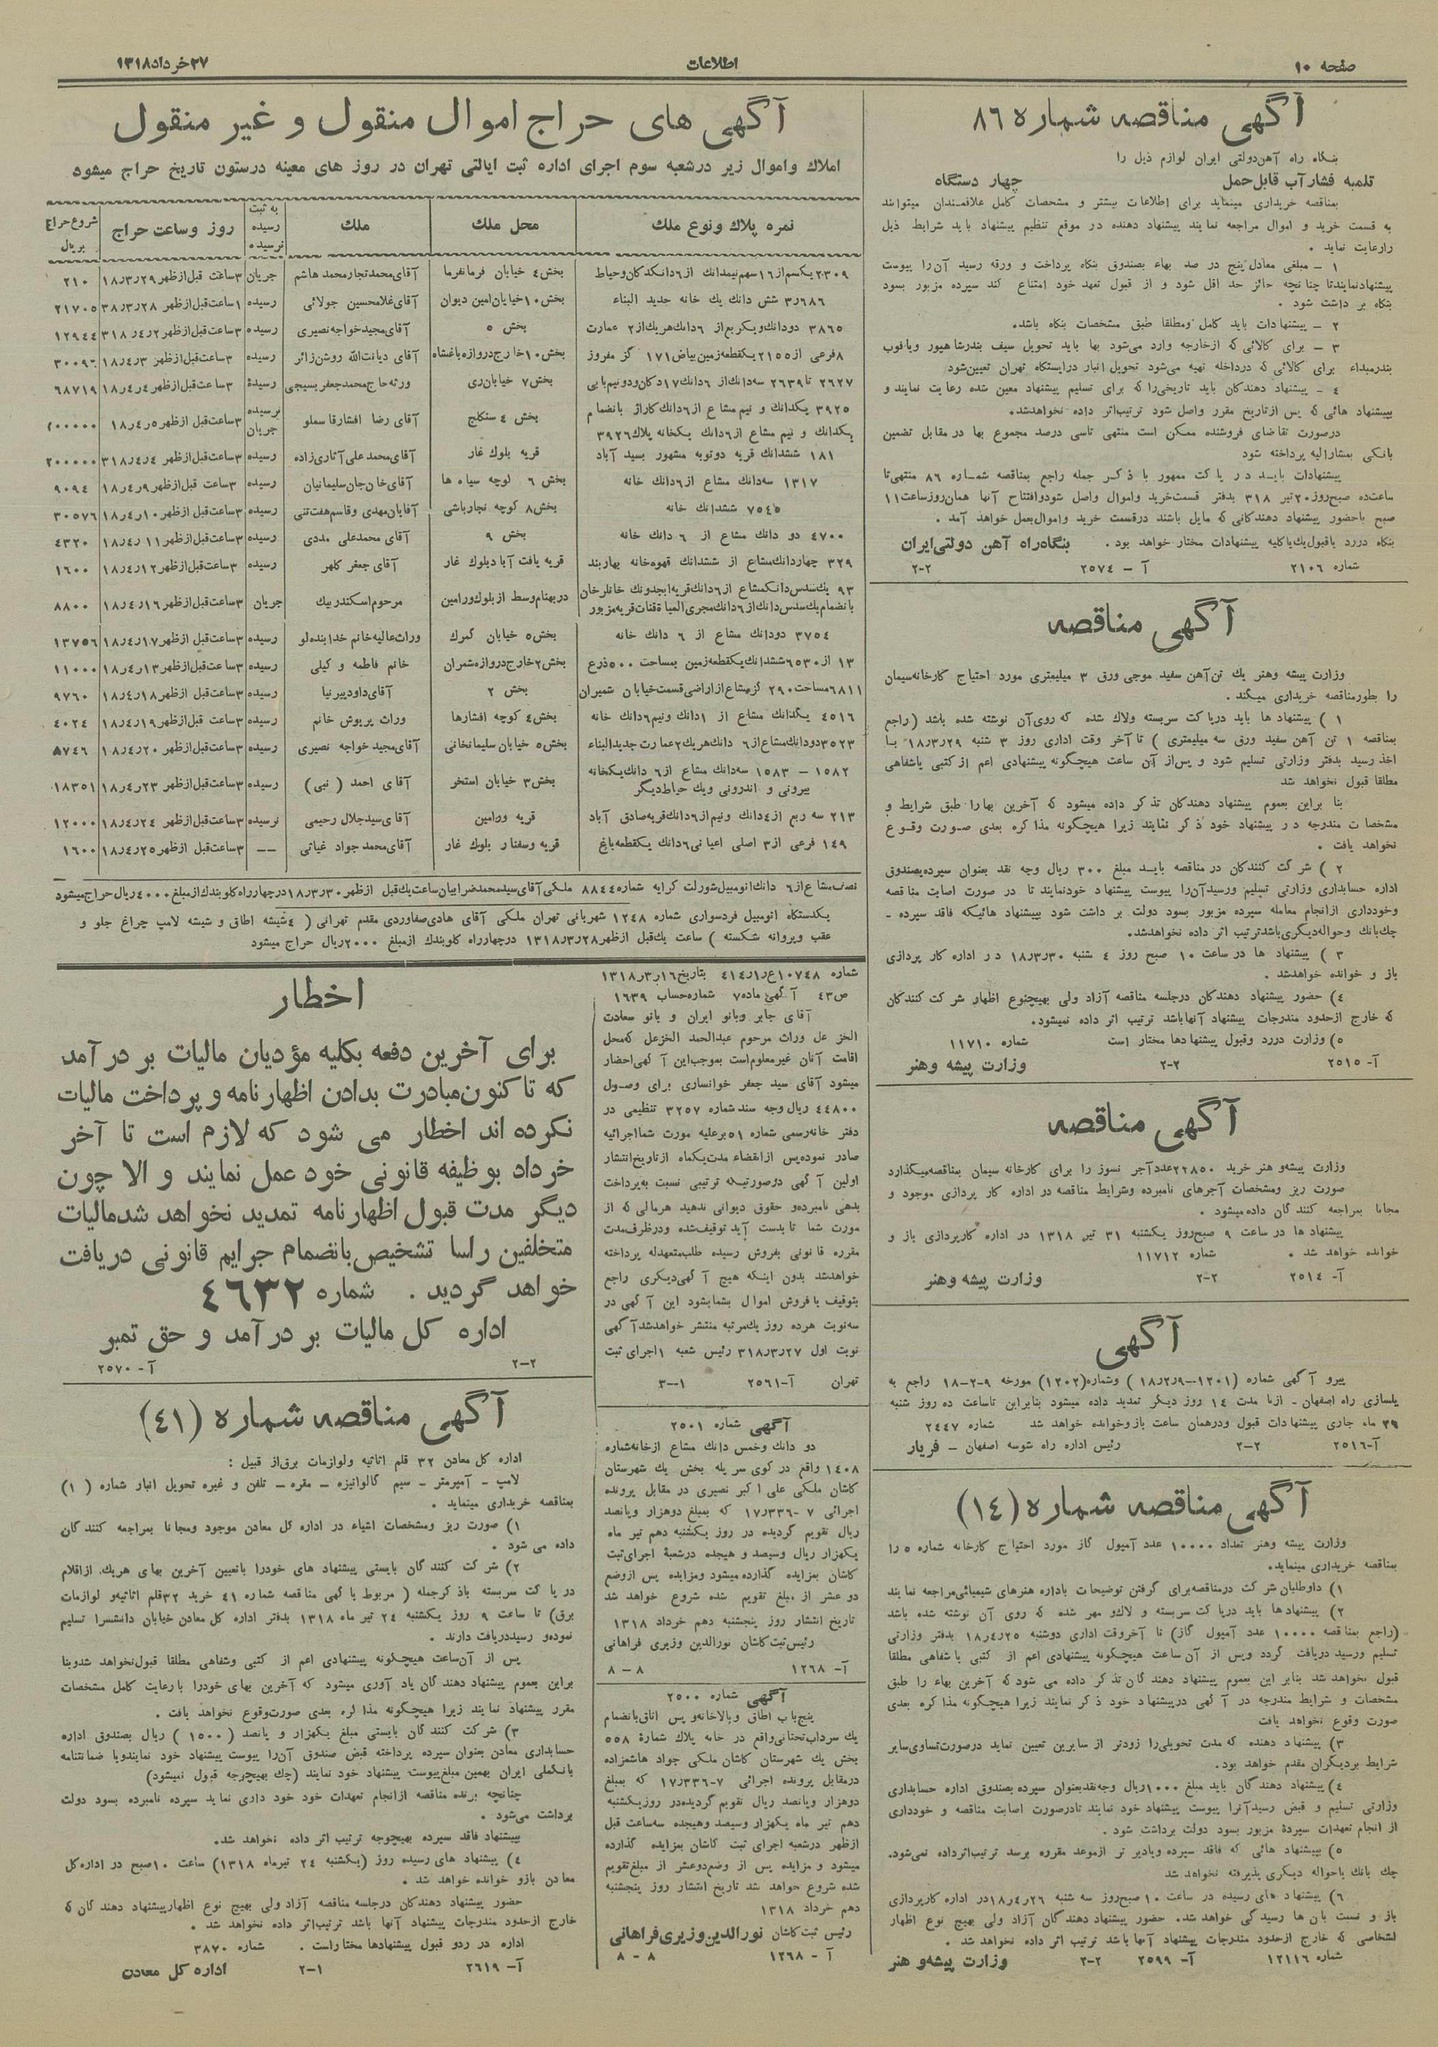 صفحه ۱۰
اطلاعات
۲۷ خرداد ۱۳۱۸
آگهی مناقصه شماره ۸۶
بنگاه راه آهن دولتی ایران لوازم ذیل را
تلمبه فشار آب قابل حمل چهار دستگاه
بمناقصه خریداری مینماید برای اطلاعات بیشتر و مشخصات کامل علاقمندان میتوانند
به قسمت خرید و اموال مراجعه نمایند پیشنهاد دهنده در موقع تنظیم پیشنهاد باید شرایط ذیل
را رعایت نماید .
۱ – مبلغی معادل پنج در صد بهاء بصندوق بنگاه پرداخت و ورقه رسید آن را پیوست
پیشنهاد نمایند تا چنانچه حائز حد اقل شود و از قبول تعهد خود امتناع کند سپرده مزبور بسود
بنگاه بر داشت شود .
۲ – پیشنهادات باید کامل و مطلقا طبق مشخصات بنگاه باشد.
۳ – برای کالائی که از خارجه وارد می‌شود بها باید تحویل سیف بندرشاهپور و یا فوب
بندر مبداء برای کالائی که در داخله تهیه می‌شود تحویل انبار در ایستگاه تهران تعیین شود
۴ – پیشنهاد دهندگان باید تاریخی را که برای تسلیم پیشنهاد معین شده رعایت نمایند و
بپیشنهاد هائی که پس از تاریخ مقرر واصل شود ترتیب اثر داده نخواهد شد.
درصورت تقاضای فروشنده ممکن است منتهی تا سی درصد مجموع بها در مقابل تضمین
بانکی بمشارالیه پرداخته شود
پیشنهادات باید در پاکت ممهور با ذکر جمله راجع بمناقصه شماره ۸۶ منتهی تا
ساعت ده صبح روز ۲۰ تیر ۳۱۸ بدفتر قسمت خرید و اموال واصل شود و افتتاح آنها همان روز ساعت ۱۱
صبح باحضور پیشنهاد دهندگانی که مایل باشند در قسمت خرید و اموال بعمل خواهد آمد .
بنگاه در رد یا قبول یک یا کلیه پیشنهادات مختار خواهد بود . بنگاه راه آهن دولتی ایران
شماره ۲۱۰۶ آ – ۲۵۷۴ ۲–۲
آگهی مناقصه
وزارت پیشه و هنر یک تن آهن سفید موجی ورق ۳ میلیمتری مورد احتیاج کارخانه سیمان
را بطور مناقصه خریداری میکند .
۱ ) پیشنهاد ها باید در پاکت سربسته و لاک شده که روی آن نوشته شده باشد ( راجع
بمناقصه ۱ تن آهن سفید ورق سه میلیمتری ) تا آخر وقت اداری روز ۳ شنبه ۱۸٫۳٫۲۹ با
اخذ رسید بدفتر وزارتی تسلیم شود و پس از آن ساعت هیچگونه پیشنهادی اعم از کتبی یا شفاهی
مطلقا قبول نخواهد شد
بنا براین بعموم پیشنهاد دهندگان تذکر داده میشود که آخرین بها را طبق شرایط و
مشخصات مندرجه در پیشنهاد خود ذکر نمایند زیرا هیچگونه مذاکره بعدی صورت وقوع
نخواهد یافت .
۲ ) شرکت کنندگان در مناقصه باید مبلغ ۳۰۰ ریال وجه نقد بعنوان سپرده بصندوق
اداره حسابداری وزارتی تسلیم و رسید آن را پیوست پیشنهاد خود نمایند تا در صورت اصابت مناقصه
و خودداری از انجام معامله سپرده مزبور بسود دولت بر داشت شود بپیشنهاد هائیکه فاقد سپرده –
چک بانک و حواله دیگری باشد ترتیب اثر داده نخواهد شد.
۳ ) پیشنهاد ها در ساعت ۱۰ صبح روز ۴ شنبه ۱۸٫۳٫۳۰ در اداره کار پردازی
باز و خوانده خواهد شد .
۴) حضور پیشنهاد دهندگان در جلسه مناقصه آزاد ولی بهیچنوع اظهار شرکت کنندگان
که خارج از حدود مندرجات پیشنهاد آنها باشد ترتیب اثر داده نمیشود.
۵) وزارت در رد و قبول پیشنهاد ها مختار است شماره ۱۱۷۱۰
آ- ۲۵۱۵ ۲-۲ وزارت پیشه و هنر
آگهی مناقصه
وزارت پیشه و هنر خرید ۲۲۸۵۰ عدد آجر نسوز را برای کارخانه سیمان بمناقصه میگذارد
صورت ریز و مشخصات آجرهای نامبرده و شرایط مناقصه در اداره کار پردازی موجود و
مجانا بمراجعه کنندگان داده میشود .
پیشنهاد ها در ساعت ۹ صبح روز یکشنبه ۳۱ تیر ۱۳۱۸ در اداره کار پردازی باز و
خوانده خواهد شد . شماره ۱۱۷۱۲
آ- ۲۵۱۴ ۲-۲ وزارت پیشه و هنر
آگهی
پیرو آگهی شماره (۱۲۰۱–۱۸٫۲٫۹ ) و شماره (۱۲۰۲) مورخه ۹-۲-۱۸ راجع به
پلسازی راه اصفهان – ازنا مدت ۱۴ روز دیگر تمدید داده میشود بنابراین تا ساعت ده روز شنبه
۲۹ ماه جاری پیشنهادات قبول و در همان ساعت باز و خوانده خواهد شد شماره ۲۴۴۷
آ-۲۵۱۶ ۲–۲ رئیس اداره راه شوسه اصفهان – فریار
آگهی مناقصه شماره (۱۴)
وزارت پیشه و هنر تعداد ۱۰۰۰۰ عدد آمپول گاز مورد احتیاج کارخانه شماره ۵ را
بمناقصه خریداری مینماید.
۱) داوطلبان شرکت در مناقصه برای گرفتن توضیحات باداره هنرهای شیمیائی مراجعه نمایند
۲) پیشنهادها باید در پاکت سربسته و لاک و مهر شده که روی آن نوشته شده باشد
(راجع بمناقصه ۱۰۰۰۰ عدد آمپول گاز) تا آخر وقت اداری دوشنبه ۱۸٫۴٫۲۵ بدفتر وزارتی
تسلیم و رسید دریافت گردد و پس از آن ساعت هیچگونه پیشنهادی اعم از کتبی یا شفاهی مطلقا
قبول نخواهد شد بنابر این بعموم پیشنهاد دهندگان تذکر داده می شود که آخرین بهاء را طبق
مشخصات و شرایط مندرجه در آگهی در پیشنهاد خود ذکر نمایند زیرا هیچگونه مذاکره بعدی
صورت وقوع نخواهد یافت
۳) پیشنهاد دهنده که مدت تحویلی را زودتر از سایرین تعیین نماید در صورت تساوی سایر
شرایط بر دیگران مقدم خواهد بود.
۴) پیشنهاد دهندگان باید مبلغ ۱۰۰۰ ریال وجه نقد بعنوان سپرده بصندوق اداره حسابداری
وزارتی تسلیم و قبض رسید آنرا پیوست پیشنهاد خود نمایند تا در صورت اصابت مناقصه و خودداری
از انجام تعهدات سپردهٔ مزبور بسود دولت برداشت شود .
۵) بپیشنهاد هائی که فاقد سپرده و یا دیر تر از موعد مقرره برسد ترتیب اثر داده نمی‌شود.
چک بانک یا حواله دیگری پذیرفته نخواهد شد
۶) پیشنهاد های رسیده در ساعت ۱۰ صبح روز سه شنبه ۱۸٫۴٫۲۶ در اداره کارپردازی
باز و نسبت بآن ها رسیدگی خواهد شد. حضور پیشنهاد دهندگان آزاد ولی بهیچ نوع اظهار
اشخاصی که خارج از حدود مندرجات پیشنهاد آنها باشد ترتیب اثر داده نخواهد شد .
شماره ۱۲۱۱۶ آ- ۲۵۹۹ ۲–۲ وزارت پیشه و هنر
آگهی های حراج اموال منقول و غیر منقول
املاک و اموال زیر در شعبه سوم اجرای اداره ثبت ایالتی تهران در روز های معینه در ستون تاریخ حراج میشود
نمره پلاک و نوع ملک | محل ملک | ملک | به ثبت رسیده نرسیده | روز و ساعت حراج | شروع حراج بریال
۲۳۰۹ یکسهم از ۱۶ سهم نیمدانک از ۶ دانک دکان و حیاط | بخش ۴ خیابان فرمانفرما | آقای محمد تجار محمد هاشم | جریان | ۳ ساعت قبل از ظهر ۱۸٫۳٫۲۹ | ۲۱۰
۳٫۶۸۶ شش دانک یک خانه جدید البناء | بخش ۱۰ خیابان امین دیوان | آقای غلامحسین جولائی | رسیده | ۱ ساعت قبل از ظهر ۳۸٫۳٫۲۸ | ۲۱۷۰۵
۳۸۶۵ دودانک و یکربع از ۶ دانک هر یک از ۲ عمارت | بخش ۵ | آقای مجید خواجه نصیری | رسیده | ۳ ساعت قبل از ظهر ۳۱۸٫۴٫۲ | ۱۲۹۴۴
۸ فرعی از ۲۱۵۵ یکقطعه زمین بیاض ۱۷۱ گز مفروز | بخش ۱۰ خارج دروازه باغشاه | آقای دیانت‌الله روشن زائر | رسیده | ۳ ساعت قبل از ظهر ۱۸٫۴٫۳ | ۳۰۰۹۶
۲۶۲۷ تا ۲۶۳۹ سه دانک از ۶ دانک ۱۷ دکان و دو نیم بابی | بخش ۷ خیابان ری | ورثه حاج محمد جعفر بسیجی | رسیدهٔ | ۳ ساعت قبل از ظهر ۱۸٫۴٫۴ | ۶۸۷۱۹
۳۹۲۵ یکدانک و نیم مشاع از ۶ دانک کاراژ بانضمام
یکدانک و نیم مشاع از ۶ دانک یکخانه پلاک ۳۹۲۶ | بخش ۴ سنگلج | آقای رضا افشار قاسملو | نرسیده جریان | ۳ ساعت قبل از ظهر ۱۸٫۴٫۵
۱۸۱ ششدانک قریه دوتویه مشهور بسید آباد | قریه بلوک غار | آقای محمد علی آثاری زاده | رسیده | ۳ ساعت قبل از ظهر ۳۱۸٫۴٫۴ | ۲۰۰۰۰۰
۱۳۱۷ سه دانک مشاع از ۶ دانک خانه | بخش ۶ لوچه سیاه ها | آقای خان جان سلیمانیان | رسیده | ۳ ساعت قبل از ظهر ۱۸٫۴٫۹ | ۹۰۹۴
۷۵۴۵ ششدانک خانه | بخش ۸ کوچه نجارباشی | آقایان مهدی و قاسم هفت تنی | رسیده | ۳ ساعت قبل از ظهر ۱۸٫۴٫۱۰ | ۳۰۵۷۶
۴۷۰۰ دو دانک مشاع از ۶ دانک خانه | بخش ۹ | آقای محمد علی مددی | رسیده | ۳ ساعت قبل از ظهر ۱۸٫۴٫۱۱ | ۴۳۲۰
۳۲۹ چهاردانک مشاع از ششدانک قهوه خانه بهاربند | قریه یافت آباد بلوک غار | آقای جعفر کلهر | رسیده | ۳ ساعت قبل از ظهر ۱۸٫۴٫۱۲ | ۱۶۰۰
۹۳ یک سدس دانک مشاع از ۶ دانک قریه ابجدونک خانلرخان
بانضمام یک سدس دانک از ۶ دانک مجری المیاه قنات قریه مزبور | در بهنام وسط از بلوک ورامین | مرحوم اسکندر بیک | جریان | ۳ ساعت قبل از ظهر ۱۸٫۴٫۱۶ | ۸۸۰۰
۳۷۵۴ دودانک مشاع از ۶ دانک خانه | بخش ۵ خیابان گمرک | وراث عالیه خانم خدابنده لو | رسیده | ۳ ساعت قبل از ظهر ۱۸٫۴٫۱۷ | ۱۳۷۵۶
۱۳ از ۶۵۳۰ ششدانک یکقطعه زمین بمساحت ۵۰۰ ذرع | بخش ۲ خارج دروازه شمران | خانم فاطمه وکیلی | رسیده | ۳ ساعت قبل از ظهر ۱۸٫۴٫۱۳ | ۱۱۰۰۰
۶۸۱۱ مساحت ۲۹۰ گز مشاع از اراضی قسمت خیابان شمیران | بخش ۲ | آقای داود پیرنیا | رسیده | ۳ ساعت قبل از ظهر ۱۸٫۴٫۱۸ | ۹۷۶۰
۴۵۱۶ یکدانک مشاع از ۱ دانک و نیم ۶ دانک خانه | بخش ۴ کوچه افشارها | وراث پریوش خانم | رسیده | ۳ ساعت قبل از ظهر ۱۸٫۴٫۱۹ | ۴۰۲۴
۳۵۲۳ دودانک مشاع از ۶ دانک هر یک ۲ عمارت جدید البناء | بخش ۵ خیابان سلیمانخانی | آقای مجید خواجه نصیری | رسیده | ۳ ساعت قبل از ظهر ۱۸٫۴٫۲۰ | ۵۷۴۶
۱۵۸۲ – ۱۵۸۳ سه دانک مشاع از ۶ دانک یکخانه
بیرونی و اندرونی و یک حیاط دیگر | بخش ۳ خیابان استخر | آقای احمد ( نبی ) | رسیده | ۳ ساعت قبل از ظهر ۱۸٫۴٫۲۳ | ۱۸۳۵۱
۲۱۳ سه ربع از ۴ دانک و نیم از ۶ دانک قریه صادق آباد | قریه ورامین | آقای سید جلال رحیمی | نرسیده | ۳ ساعت قبل از ظهر ۱۸٫۴٫۲۴ | ۱۲۰۰۰
۱۴۹ فرعی از ۳ اصلی اعیانی ۶ دانک یکقطعه باغ | قریه وسفنار بلوک غار | آقای محمد جواد غیاثی | –– | ۳ ساعت قبل از ظهر ۱۸٫۴٫۲۵ | ۱۶۰۰
نصف مشاع از ۶ دانک اتومبیل شورلت کرایه شماره ۸۸۴۴ ملکی آقای سید محمد ضرابیان ساعت یک قبل از ظهر ۱۸٫۳٫۳۰ در چهار راه کلوبندک از مبلغ ۴۰۰۰ ریال حراج میشود
یکدستگاه اتومبیل فرد سواری شماره ۱۲۴۸ شهربانی تهران ملکی آقای هادی صفاوردی مقدم تهرانی ( ۴ شیشه اطاق و شیشه لامپ چراغ جلو و
عقب و پروانه شکسته ) ساعت یک قبل از ظهر ۱۳۱۸٫۳٫۲۸ در چهار راه کلوبندک از مبلغ ۲۰۰۰ ریال حراج میشود
شماره ۱۰۷۴۸ع٫ر۴۱۴٫۱ بتاریخ ۱۳۱۸٫۳٫۱۶
ص ۴۳ آگهی ماده ۷ شماره حساب ۱۶۳۹
آقای جابر و بانو ایران و بانو سعادت
الخزعل وراث مرحوم عبدالحمد الخزعل که محل
اقامت آنان غیر معلوم است بموجب این آگهی احضار
میشود آقای سید جعفر خوانساری برای وصول
۴۴۸۰۰ ریال وجه سند شماره ۳۲۵۷ تنظیمی در
دفتر خانه رسمی شماره ۵۱ بر علیه مورث شما اجرائیه
صادر نموده پس از انقضاء مدت یکماه از تاریخ انتشار
اولین آگهی در صورتیکه ترتیبی نسبت به پرداخت
بدهی نامبرده و حقوق دیوانی ندهید هر مالی که از
مورث شما تا بدست آید توقیف شده و در ظرف مدت
مقرره قانونی بفروش رسیده طلب متعهدله پرداخته
خواهد شد بدون اینکه هیچ آگهی دیگری راجع
بتوقیف یا فروش اموال بشما بشود این آگهی در
سه نوبت هرده روز یک مرتبه منتشر خواهد شد آگهی
نوبت اول ۳۱۸٫۳٫۲۷ رئیس شعبه ۱ اجرای ثبت
تهران آ-۲۵۶۱ ۱–۳
آگهی شماره ۲۵۰۱
دو دانک و خمس دانک مشاع از خانه شماره
۱۴۰۸ واقع در کوی سر پله بخش یک شهرستان
کاشان ملکی علی اکبر نصیری در مقابل پرونده
اجرائی ۷-۱۷٫۳۳۶ که بمبلغ دوهزار و پانصد
ریال تقویم گردیده در روز یکشنبه دهم تیر ماه
یکهزار ریال و سیصد و هیجده در شعبهٔ اجرای ثبت
کاشان بمزایده گذارده میشود و مزایده پس از وضع
دو عشر از مبلغ تقویم شده شروع خواهد شد
تاریخ انتشار روز پنجشنبه دهم خرداد ۱۳۱۸
رئیس ثبت کاشان نورالدین وزیری فراهانی
آ- ۱۲۶۸ ۸ – ۸
آگهی شماره ۲۵۰۰
پنج باب اطاق و بالاخانه و پس اتاق بانضمام
یک سرداب تحتانی واقع در خانه پلاک شمارهٔ ۵۵۸
بخش یک شهرستان کاشان ملکی جواد هاشم زاده
در مقابل پرونده اجرائی ۷-۱۷٫۳۳۶ که بمبلغ
دوهزار و پانصد ریال تقویم گردیده در روز یکشنبه
دهم تیر ماه یکهزار و سیصد و هیجده سه ساعت قبل
از ظهر در شعبه اجرای ثبت کاشان بمزایده گذارده
میشود و مزایده پس از وضع دو عشر از مبلغ تقویم
شده شروع خواهد شد تاریخ انتشار روز پنجشنبه
دهم خرداد ۱۳۱۸
رئیس ثبت کاشان نورالدین وزیری فراهانی
آ – ۱۲۶۸ ۸ – ۸
اخطار
برای آخرین دفعه بکلیه مؤدیان مالیات بر در آمد
که تاکنون مبادرت بدادن اظهارنامه و پرداخت مالیات
نکرده اند اخطار می شود که لازم است تا آخر
خرداد بوظیفه قانونی خود عمل نمایند و الا چون
دیگر مدت قبول اظهارنامه تمدید نخواهد شد مالیات
متخلفین راسا تشخیص بانضمام جرایم قانونی دریافت
خواهد گردید . شماره ۴۶۳۲
اداره کل مالیات بر در آمد و حق تمبر
۲–۲ آ- ۲۵۷۰
آگهی مناقصه شماره (۴۱)
اداره کل معادن ۳۲ قلم اثاثیه و لوازمات برق از قبیل :
لامپ – آمپرمتر – سیم گالوانیزه – مقره – تلفن و غیره تحویل انبار شماره ( ۱)
بمناقصه خریداری مینماید .
۱) صورت ریز و مشخصات اشیاء در اداره کل معادن موجود و مجانا بمراجعه کنندگان
داده می شود .
۲) شرکت کنندگان بایستی پیشنهاد های خود را باتعیین آخرین بهای هر یک از اقلام
در پاکت سربسته باذکر جمله ( مربوط بآگهی مناقصه شماره ۴۱ خرید ۳۲ قلم اثاثیه و لوازمات
برق) تا ساعت ۹ روز یکشنبه ۲۴ تیر ماه ۱۳۱۸ بدفتر اداره کل معادن خیابان دانشسرا تسلیم
نموده و رسید دریافت دارند .
پس از آن ساعت هیچگونه پیشنهادی اعم از کتبی و شفاهی مطلقا قبول نخواهد شد و بنا
براین بعموم پیشنهاد دهندگان یاد آوری میشود که آخرین بهای خود را با رعایت کامل مشخصات
مقرر پیشنهاد نمایند زیرا هیچگونه مذاکره بعدی صورت وقوع نخواهد یافت .
۳) شرکت کنندگان بایستی مبلغ یکهزار و پانصد ( ۱۵۰۰ ) ریال بصندوق اداره
حسابداری معادن بعنوان سپرده پرداخته قبض صندوق آن را پیوست پیشنهاد خود نمایند و یا ضمانتنامه
بانک ملی ایران بهمین مبلغ پیوست پیشنهاد خود نمایند (چک بهیچوجه قبول نمیشود)
چنانچه برنده مناقصه از انجام تعهدات خود خود داری نماید سپرده نامبرده بسود دولت
برداشت می‌شود .
بپیشنهاد فاقد سپرده بهیچوجه ترتیب اثر داده نخواهد شد.
۴) پیشنهاد های رسیده روز (یکشنبه ۲۴ تیرماه ۱۳۱۸) ساعت ۱۰ صبح در اداره کل
معادن باز و خوانده خواهد شد .
حضور پیشنهاد دهندگان در جلسه مناقصه آزاد ولی بهیچ نوع اظهار پیشنهاد دهندگان که
خارج از حدود مندرجات پیشنهاد آنها باشد ترتیب اثر داده نخواهد شد .
اداره در رد و قبول پیشنهادها مختار است . شماره ۳۸۷۰
آ- ۲۶۱۹ ۱–۲ اداره کل معادن